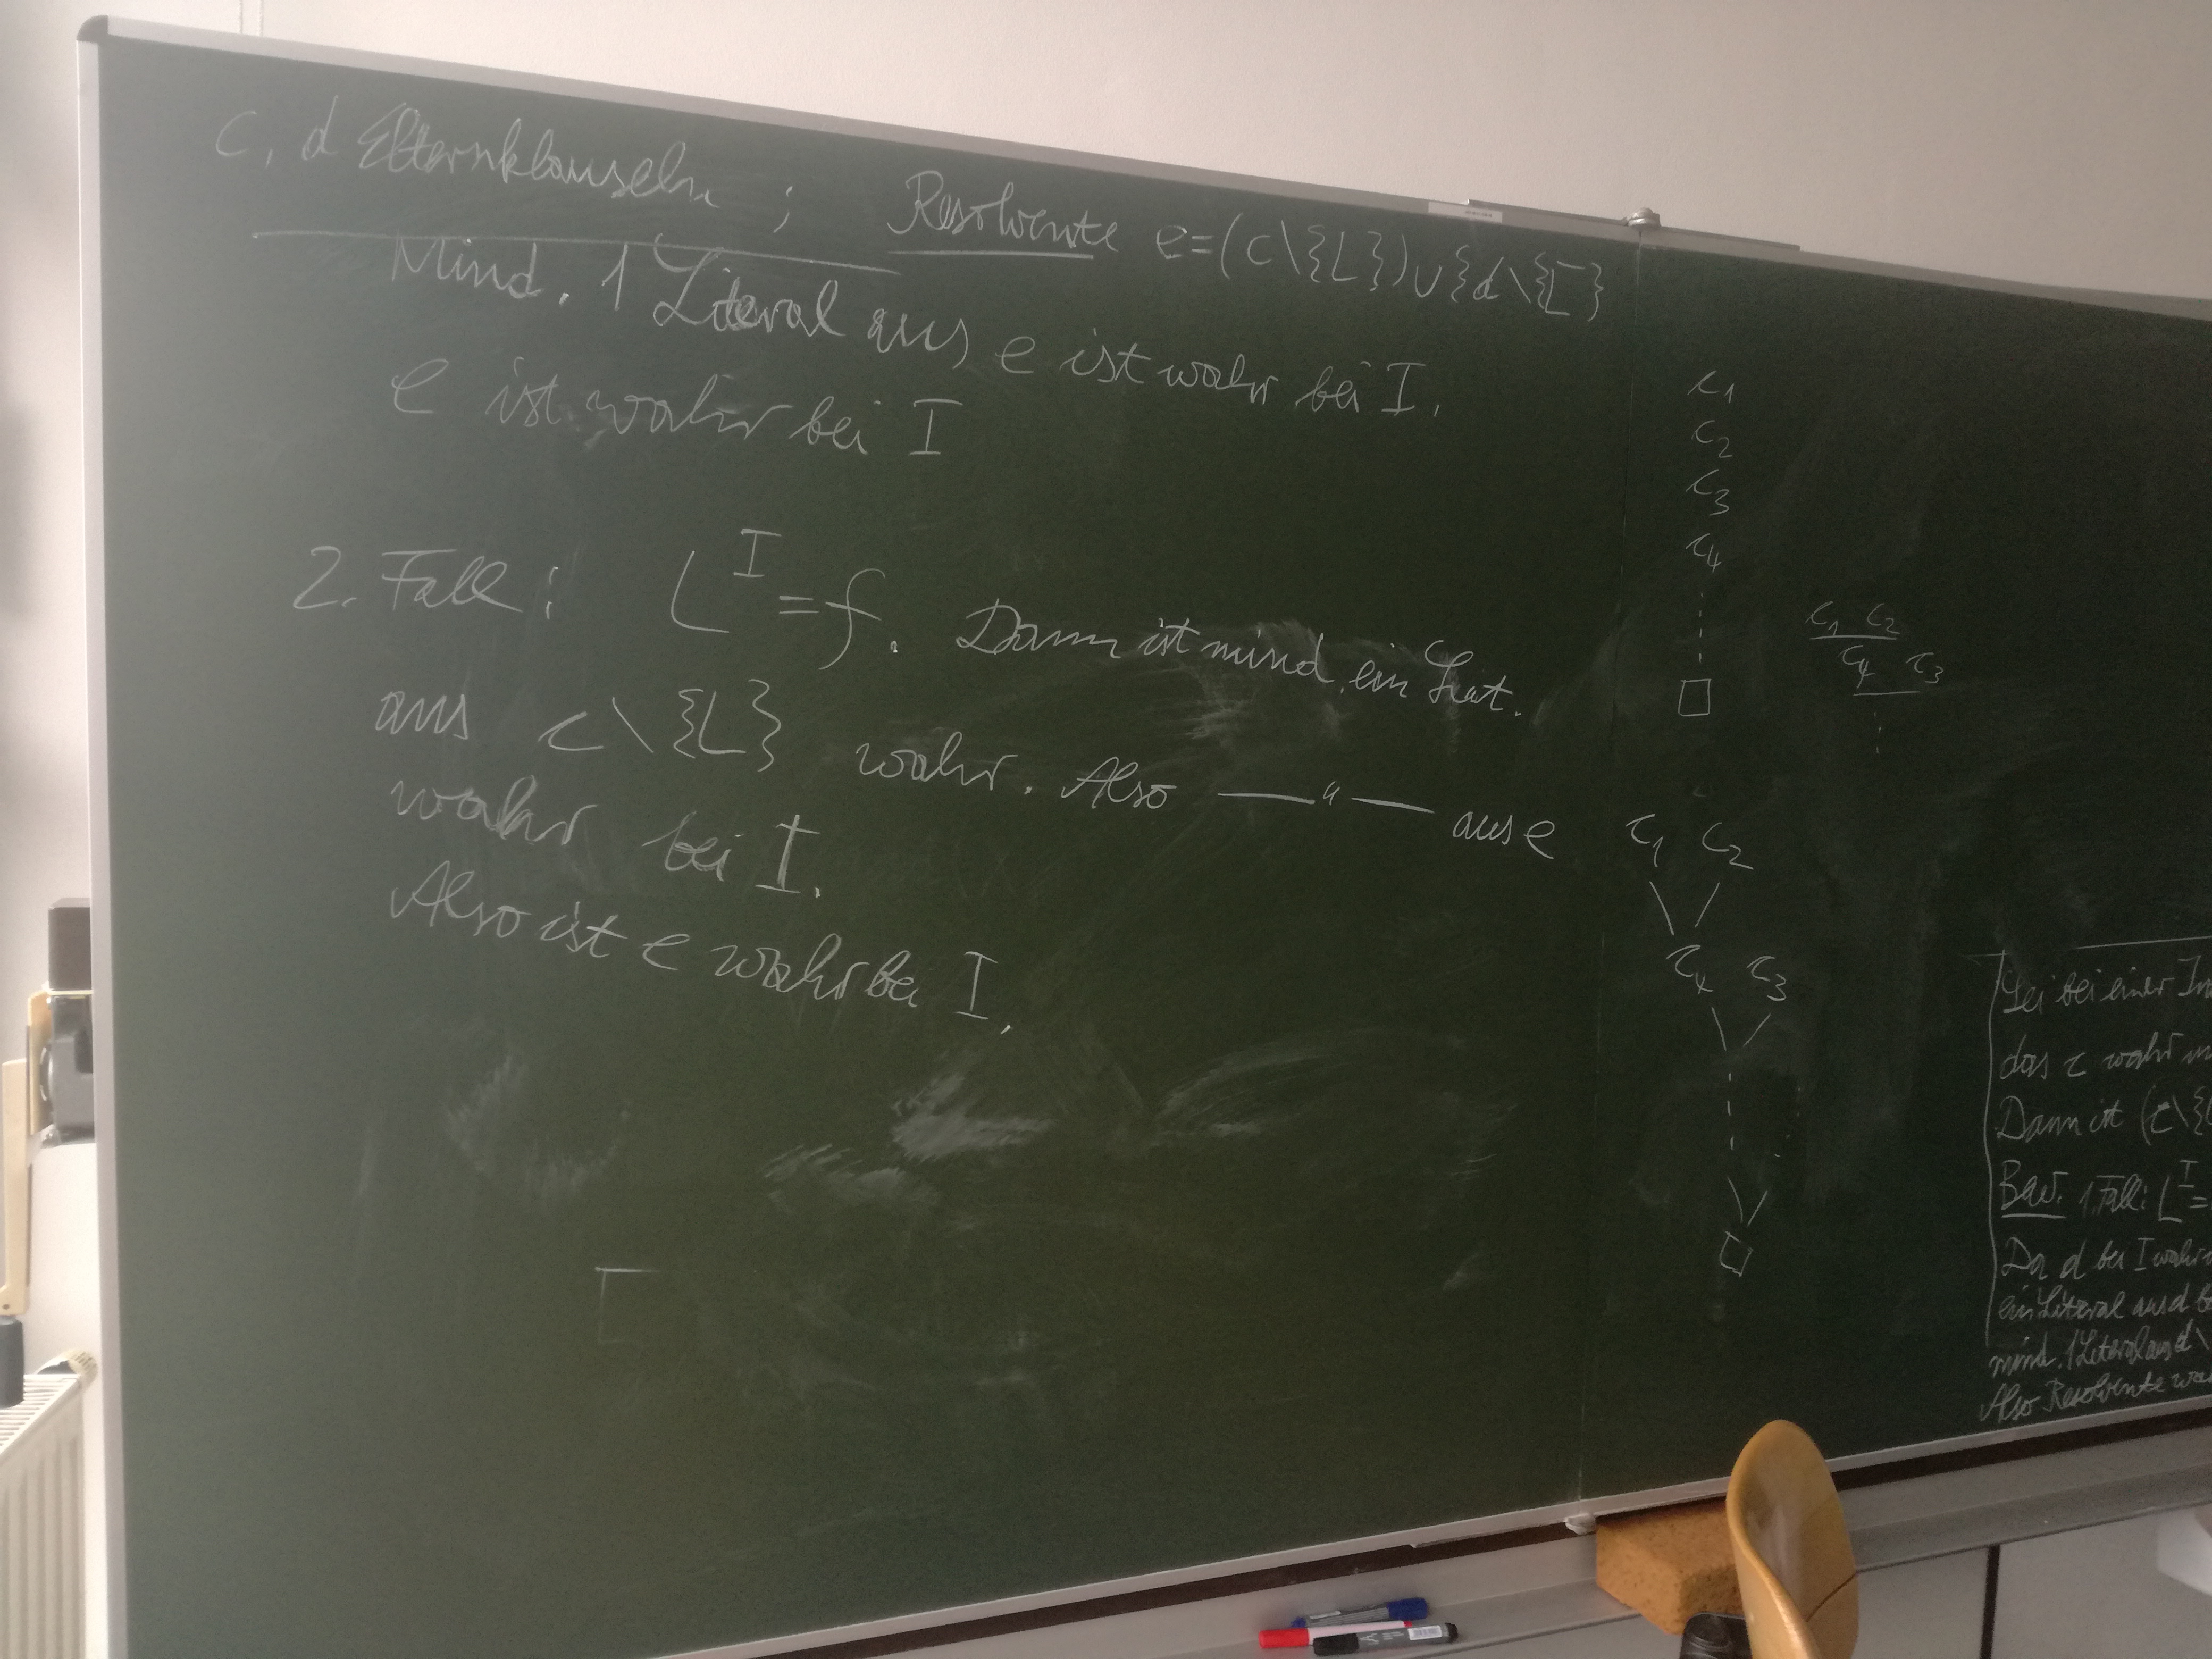 c, d Elternklauseln ; Resolvente e=(c\{L})∪{d\{L̅}
Mind. 1 Literal aus e ist wahr bei I.
e ist wahr bei I
2. Fall: L^I = f. Dann ist mind. ein Lit.
aus c\{L} wahr. Also —"— aus e
wahr bei I.
Also ist e wahr bei I.
c1
c2
c3
c4
□
c1 c2
c4 c3
c1 c2
c4 c3
□
Sei bei einer
das c wahr
Dann ist (c\{
Bew. 1. Fall: L^I =
Da d bei I wahr
ein Literal aus d
mind. 1 Literal aus d\
Also Resolvente